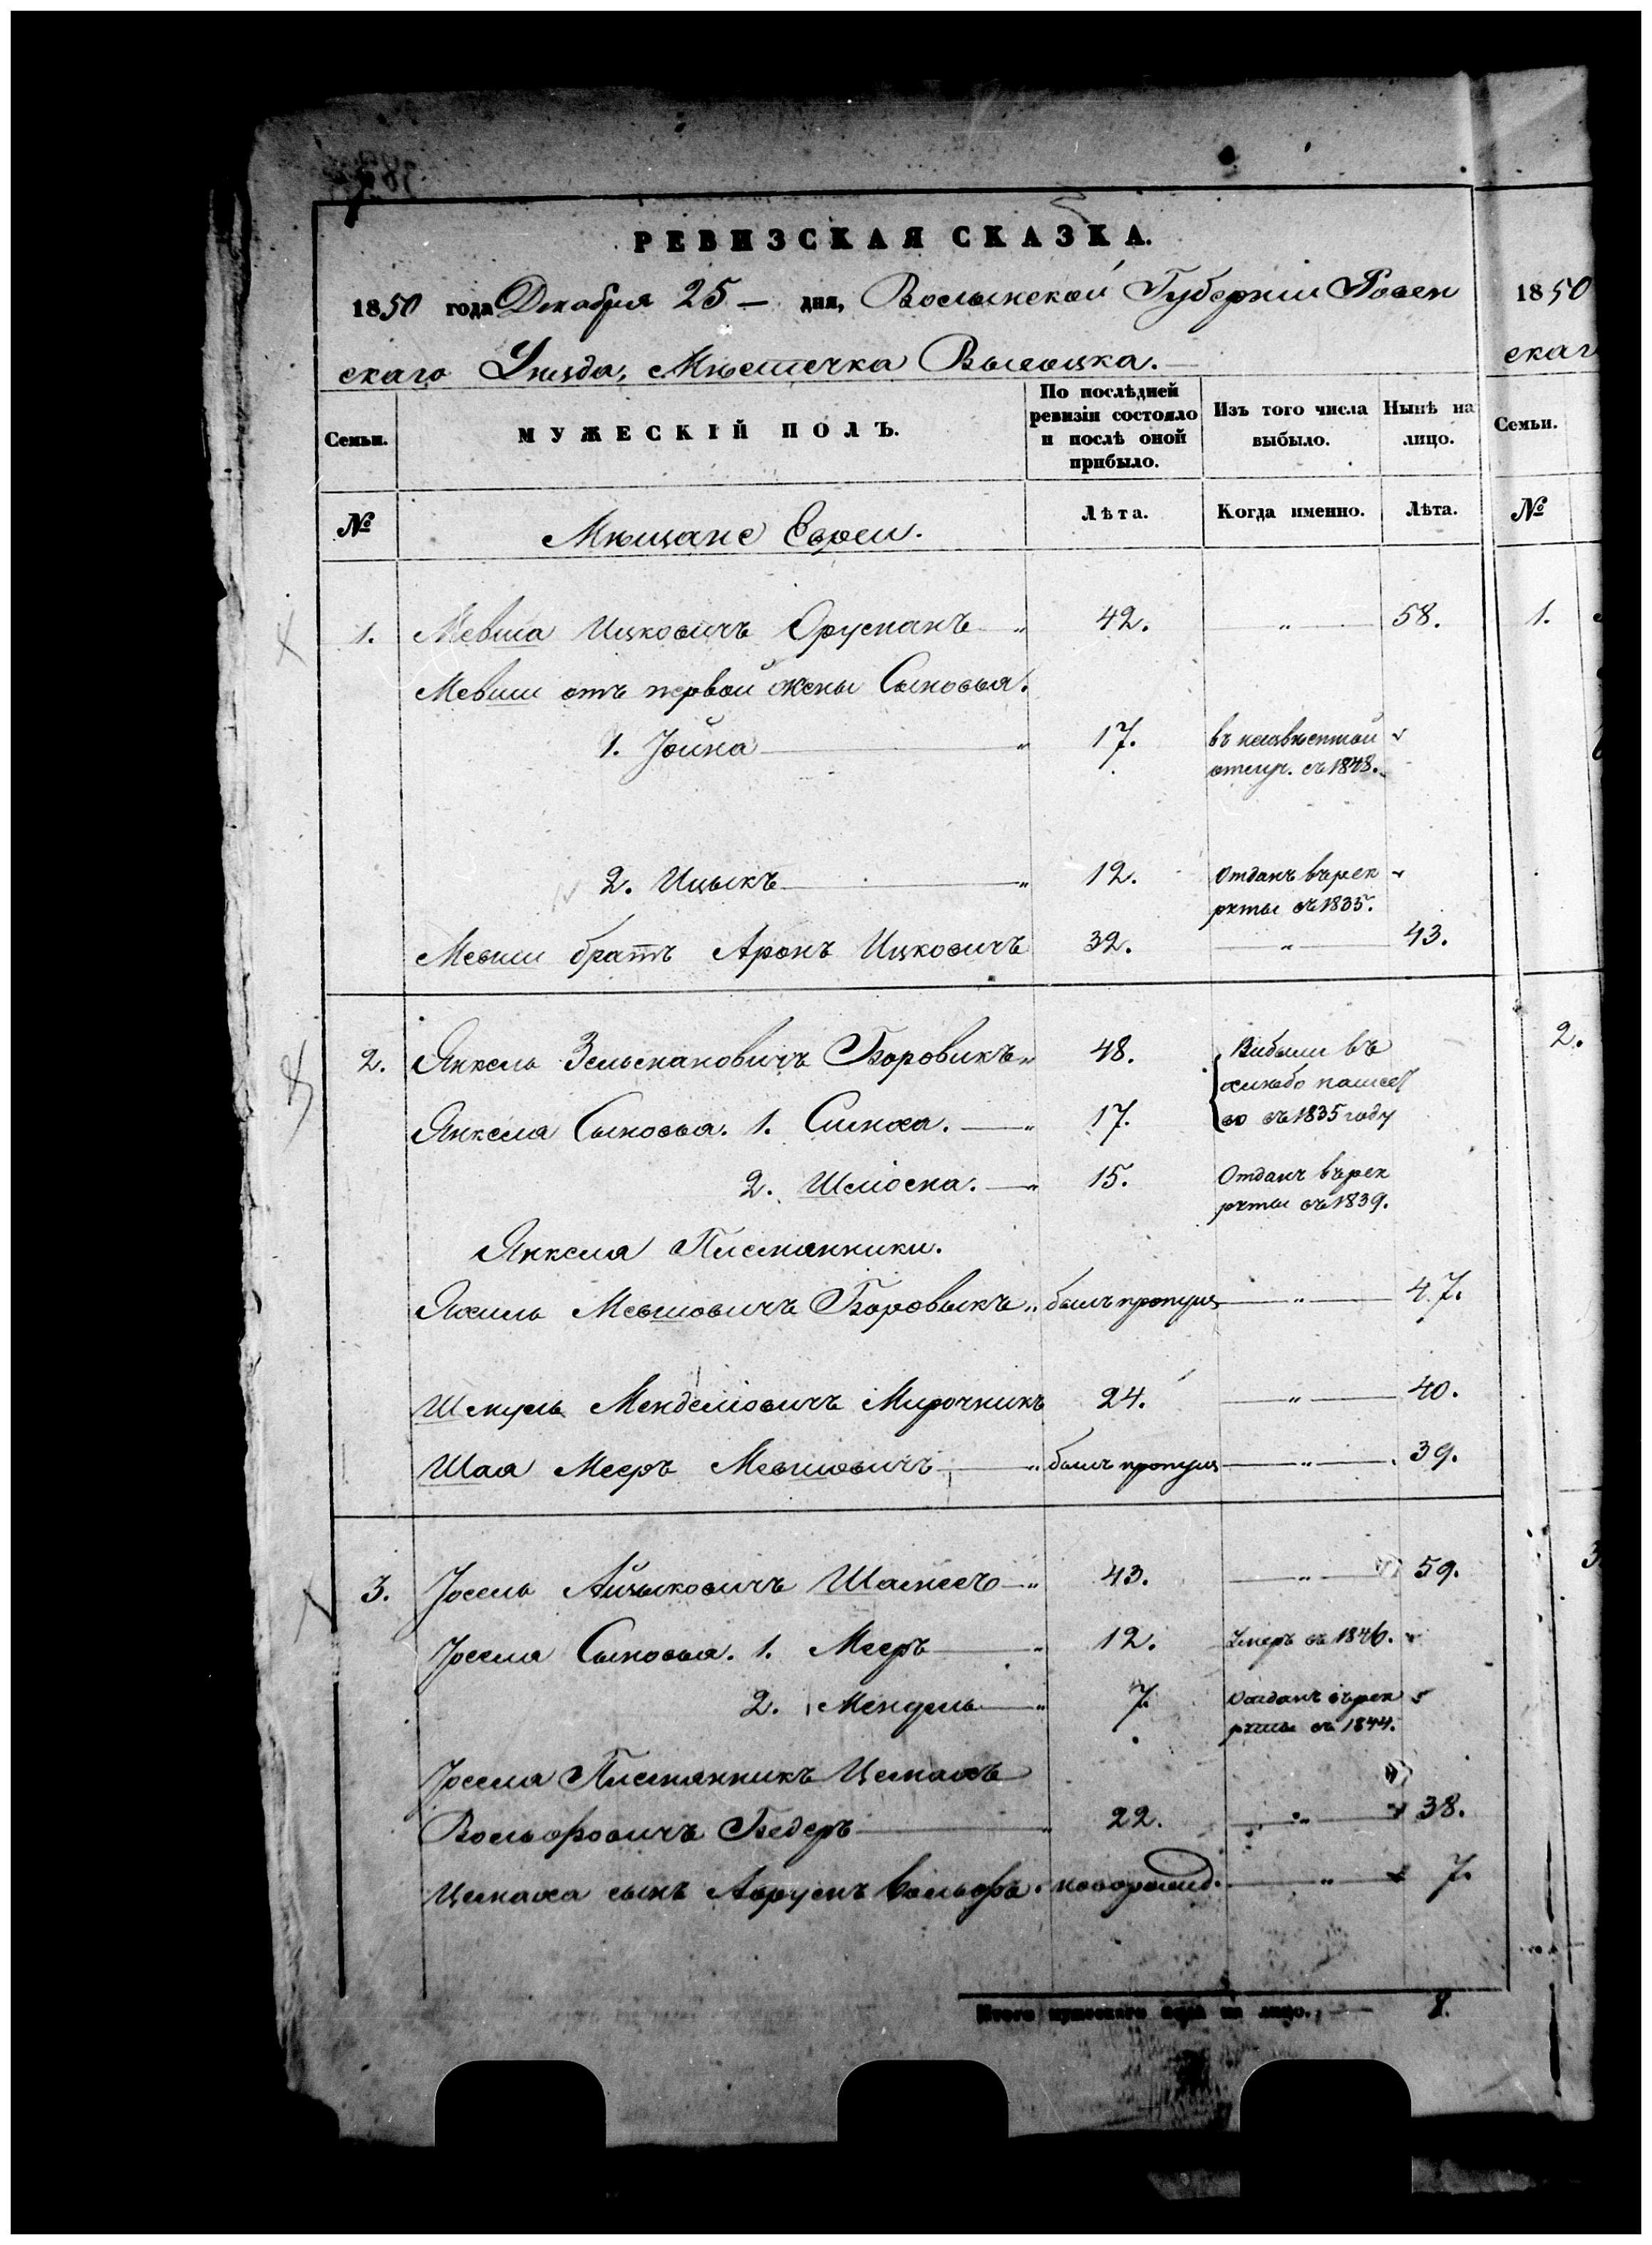 РЕВИЗСКАЯ СКАЗКА.
1850 года Декабря 25 — дня, Волынской Губернии Ровен
скаго Уѣзда, Мѣстечка Высоцка. —
Семьи.
МУЖЕСКІЙ ПОЛЪ.
По послѣдней
ревизіи состояло
и послѣ оной
прибыло.
Изъ того числа
выбыло.
Нынѣ на
лицо.
№
Мѣщане Евреи.
Лѣта.
Когда именно.
Лѣта.
1. Мевша Ицковичъ Фруманъ „ 42. „ 58.
Мевши отъ первой жены Сыновья.
1. Іойна „ 17. въ неизвѣстной
отлуч. съ 1848.
2. Ицыкъ „ 12. Отданъ въ рек
руты въ 1835.
Мевши братъ Аронъ Ицковичъ 32. „ 43.
2. Янкель Зельмановичъ Боровикъ „ 48. Выбыли въ
хлѣбопашес
во въ 1835 году
Янкеля Сыновья. 1. Симха. „ 17.
2. Шліома. „ 15. Отданъ въ рек
руты въ 1839.
Янкеля Племянники.
Яхиль Мевшовичъ Боровыкъ „ былъ пропущ „ 47.
Шмуль Менделіовичъ Мирочникъ 24. „ 40.
Шая Мееръ Мевшовичъ „ былъ пропущ „ 39.
3. Іосель Айзыковичъ „ 43. „ 59.
Іоселя Сыновья. 1. Мееръ „ 12. Умеръ въ 1846.
2. Мендель „ 7. Отданъ въ рек
руты въ 1844.
Іоселя Племянникъ Цемахъ
Вольфовичъ Бедеръ „ 22. „ 38.
Цемаха сынъ Аврумъ Вольфъ. новорожд. „ 7.
Итого мужескаго пола на лицо. — 8.
1850
скаг
Семьи.
№
1.
2.
3.